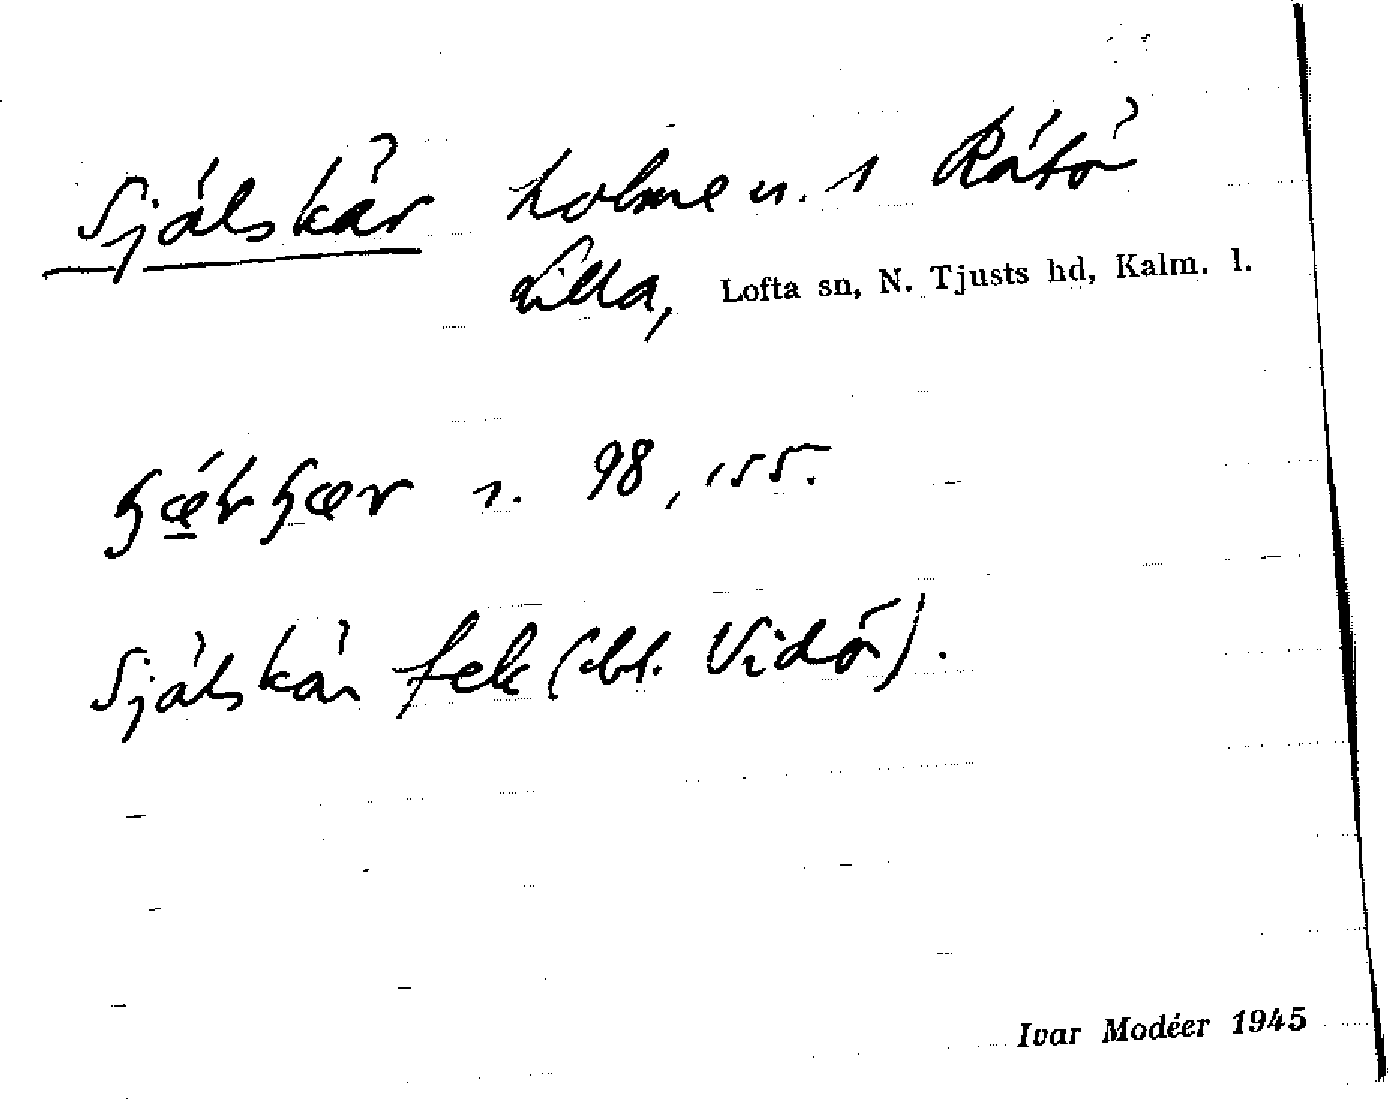 Själskär holme u. s Rätö
Lilla, Lofta sn, N. Tjusts hd, Kalm. l.
s. 98, 155.
Själskär fek (bl. Vidö).
Ivar Modéer 1945